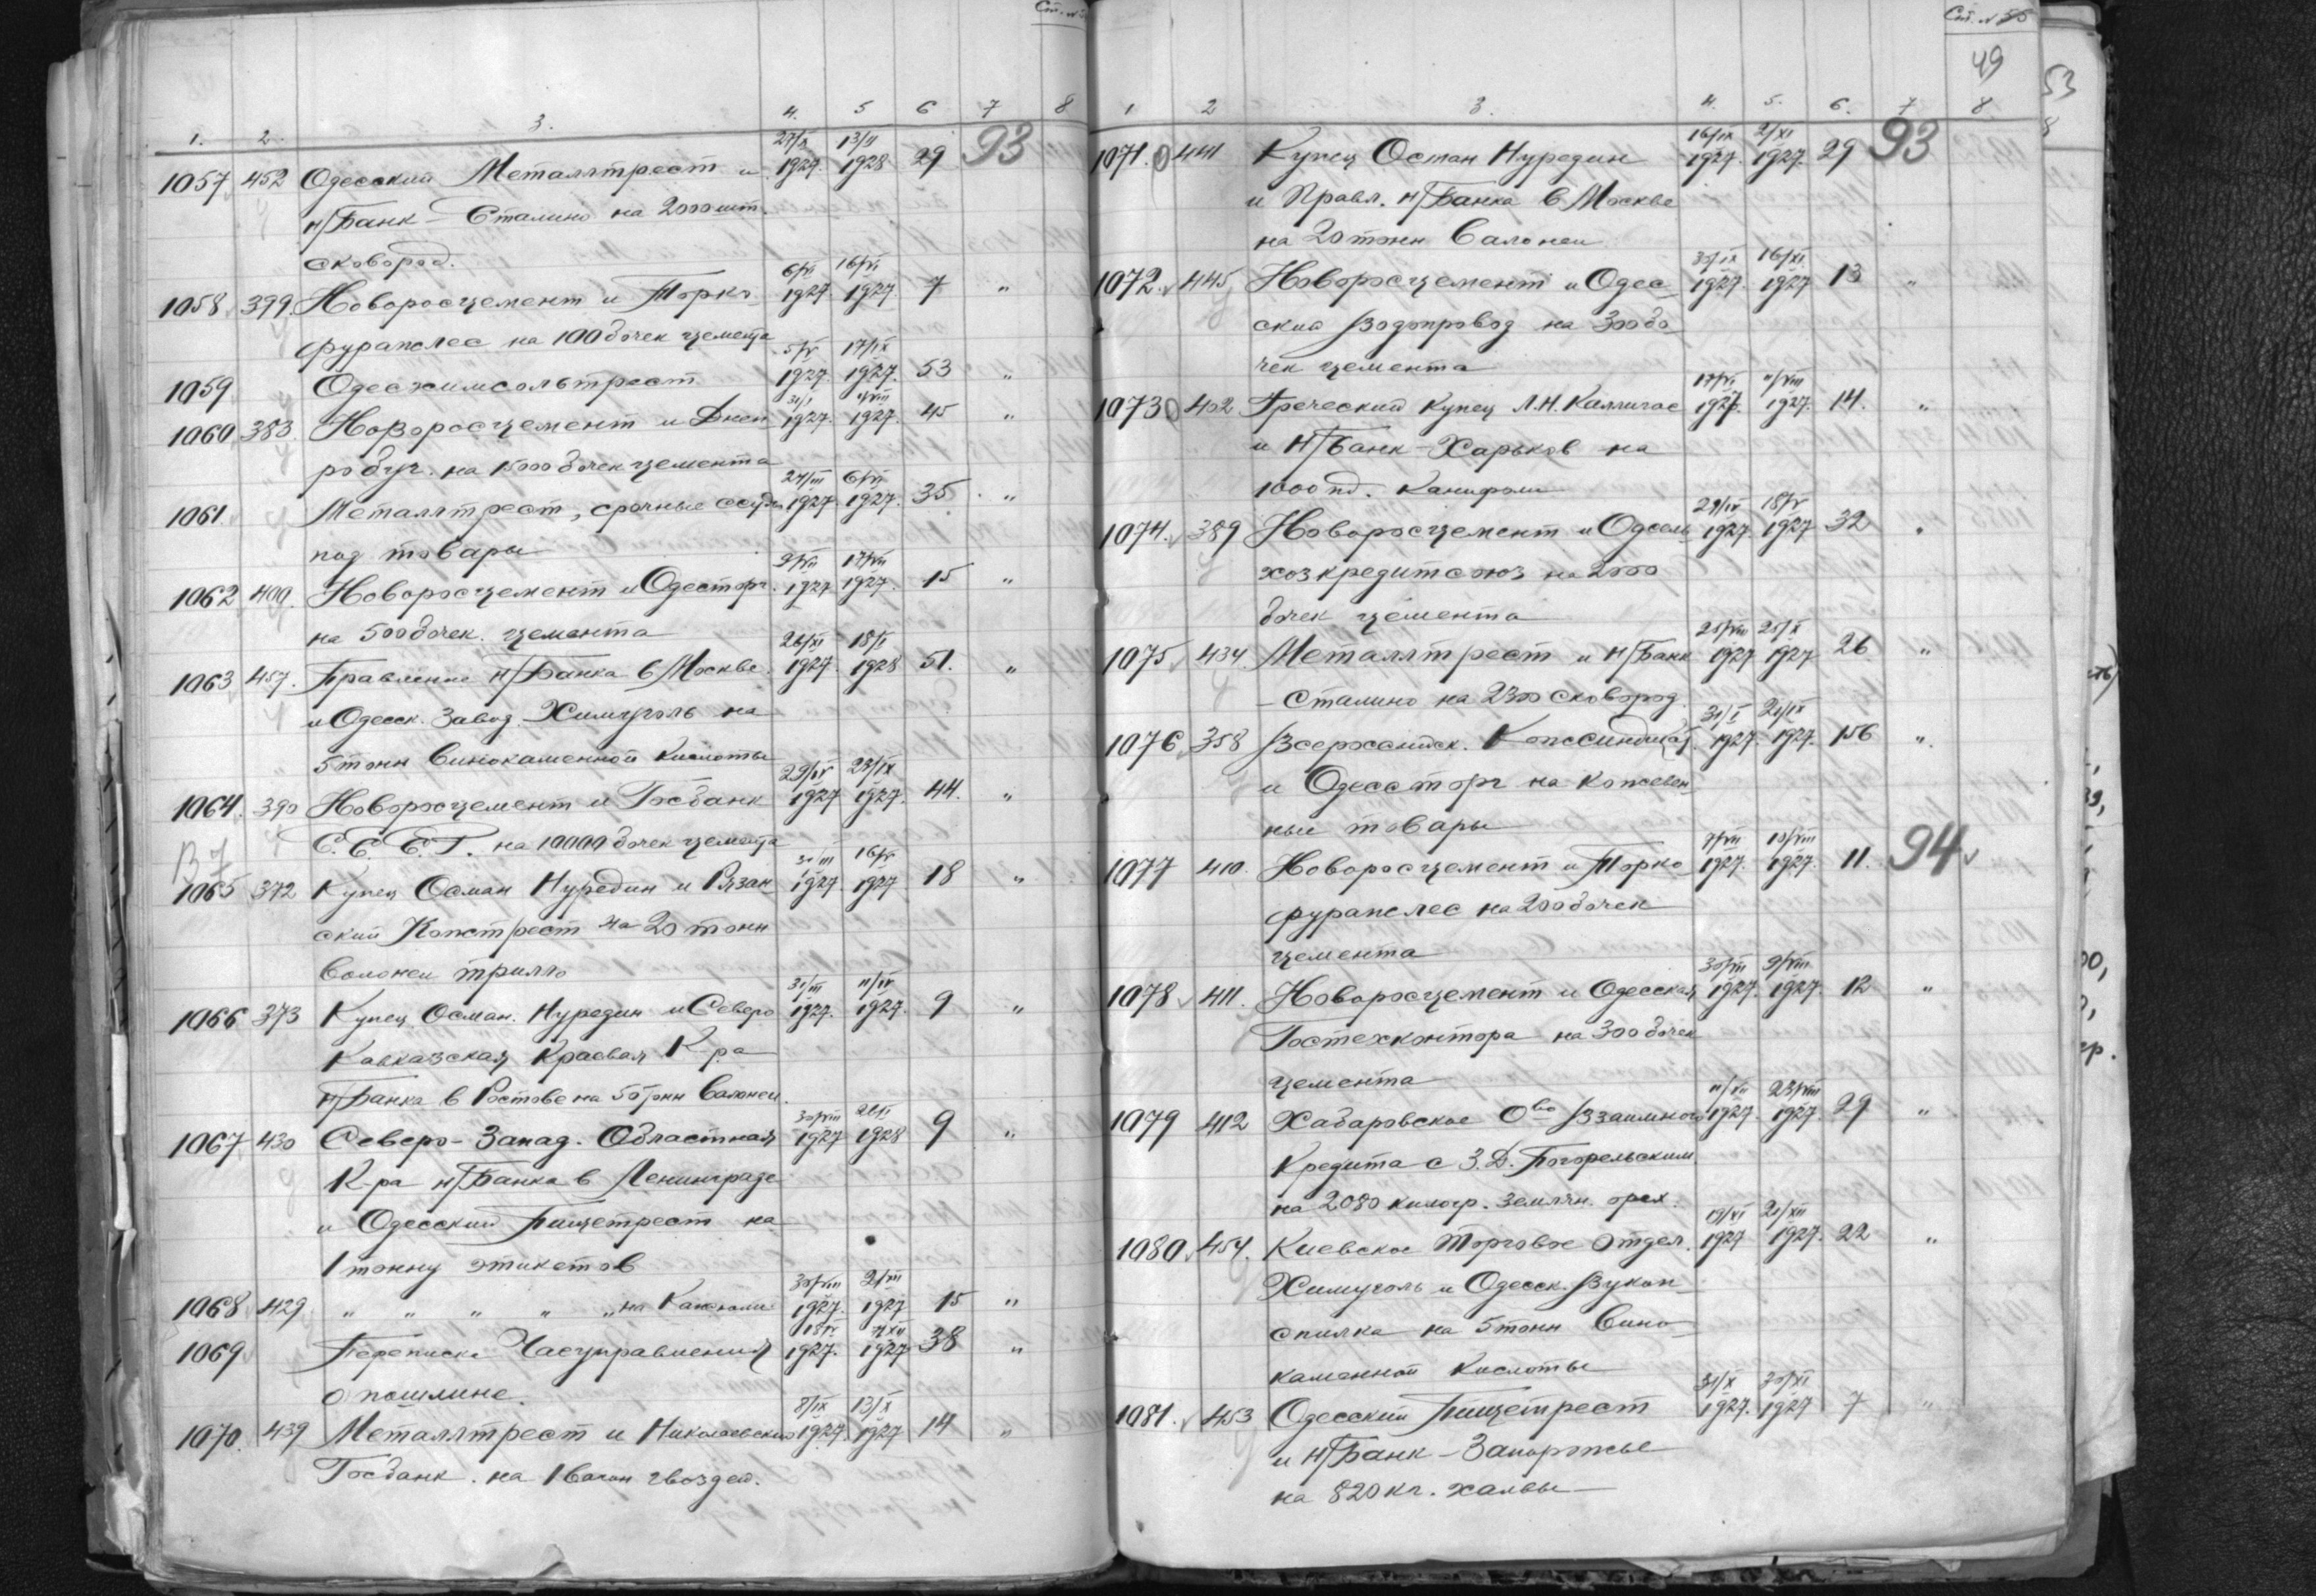 1. 2. 3. 4. 5 6 7 8
27/X 13/II
1057 452 Одесский Металлтрест и 1927. 1928 29 93
н/Банк - Сталино на 2000 шт.
сковород.
6/VI 16/VI
1058 399. Новоросцемент и Торко 1927. 1927. 7 "
фурапслес на 100 бочек цемента
5/V 17/IX
1059 Одесхимсольтрест 1927. 1927. 53 "
31/I
1060 383. Новоросцемент и Днеп 1927. 1927. 45 "
робуг. на 15000 бочек цемента
24/III 6/VI
1061 Металлтрест, срочные ссуды 1927. 1927. 35. "
под товары
9/VII 17/VII
1062 400. Новоросцемент и Одесторг. 1927 1927. 15 "
на 500 бочек. цемента
26/XI 18/I
1063 457. Правление н/Банка в Москве. 1927. 1928 51. "
и Одесск. Завод. Химуголь на
5 тонн Винокаменной кислоты
29/IV 27/IX
1064. 390 Новоросцемент и Госбанк 1927 1927. 44. "
С.Е.Е.Т. на 10000 бочек цемента
31/III 16/V
1065 372 Купец Осман Нуредин и Рязан 1927. 1927 18 "
ский Кожтрест на 20 тонн
Волонеи трилло
31/III 11/IV
1066 373 Купец Осман. Нуредин и Северо 1927. 1927. 9 "
Кавказская Краевая К-ра
н/Банка в Ростове на 50 тонн Валонеи.
30/VIII
1067 430 Северо-Запад. Областная 1927 1928 9 "
К-ра н/Банка в Ленинграде
и Одесский Пищетрест на
1 тонну этикетов
30/VIII
1068 429 " " " " " на 1927. 1927 15 "
1069 Переписка Часуправления 1927. 1927 38 "
о пошлине.
8/IX 13/X
1070. 439 Металлтрест и Николаевский 1927. 1927 14 "
Госбанк. на 1 вагон гвоздей.
49
1 2 3. 4. 5. 6. 7 8
16/IX 2/XI
1071. 444 Купец Осман Нуредин 1927. 1927. 29 93
и Правл. н/Банка в Москве
на 20 тонн Валонеи
30/IX 16/XI
1072. 445 Новоросцемент и Одес 1927. 1927 13 "
ский Водопровод на 300 бо
чек цемента
17/VI 11/VIII
1073 402 Греческий Купец Л.Н. Каллигас 1927. 1927. 14. "
и Н/Банк - Харьков на
1000 пд. Канифоли
29/IV 18/V
1074. 389 Новоросцемент и Одсель 1927. 1927 32 "
хозкредитсоюз на 2000
бочек цемента
25/VIII 25/X
1075 434. Металлтрест и Н/Банк 1927 1927 26 "
- Сталино на 2300 Сковород.
31/I 21/IX
1076 358 Всероссийск. Кожсиндикат. 1927. 1927. 156 "
и Одессторг на кожевен
ные товары
7/VII 10/VIII
1077 410. Новоросцемент и Торко 1927. 1927. 11. 94
фурапслес на 200 бочек
цемента
30/VII 9/VIII
1078 411. Новоросцемент и Одесская 1927. 1927. 12 "
Гостехконтора на 300 бочек
цемента
11/VII 23/VIII
1079 412 Хабаровское О-во Взаимного 1927. 1927. 29 "
Кредита с З.Д. Погорельским
на 2080 килогр. землян. орех.
19/XI 21/XII
1080. 454. Киевское Торговое Отдел. 1927 1927. 22 "
Химуголь и Одесск. Вукоп
спилка на 5 тонн Вино
каменной Кислоты
31/X 30/XI
1081. 453 Одесский Пищетрест 1927. 1927 7 "
и Н/Банк - Запорожье
на 820 кг. халвы
53
8